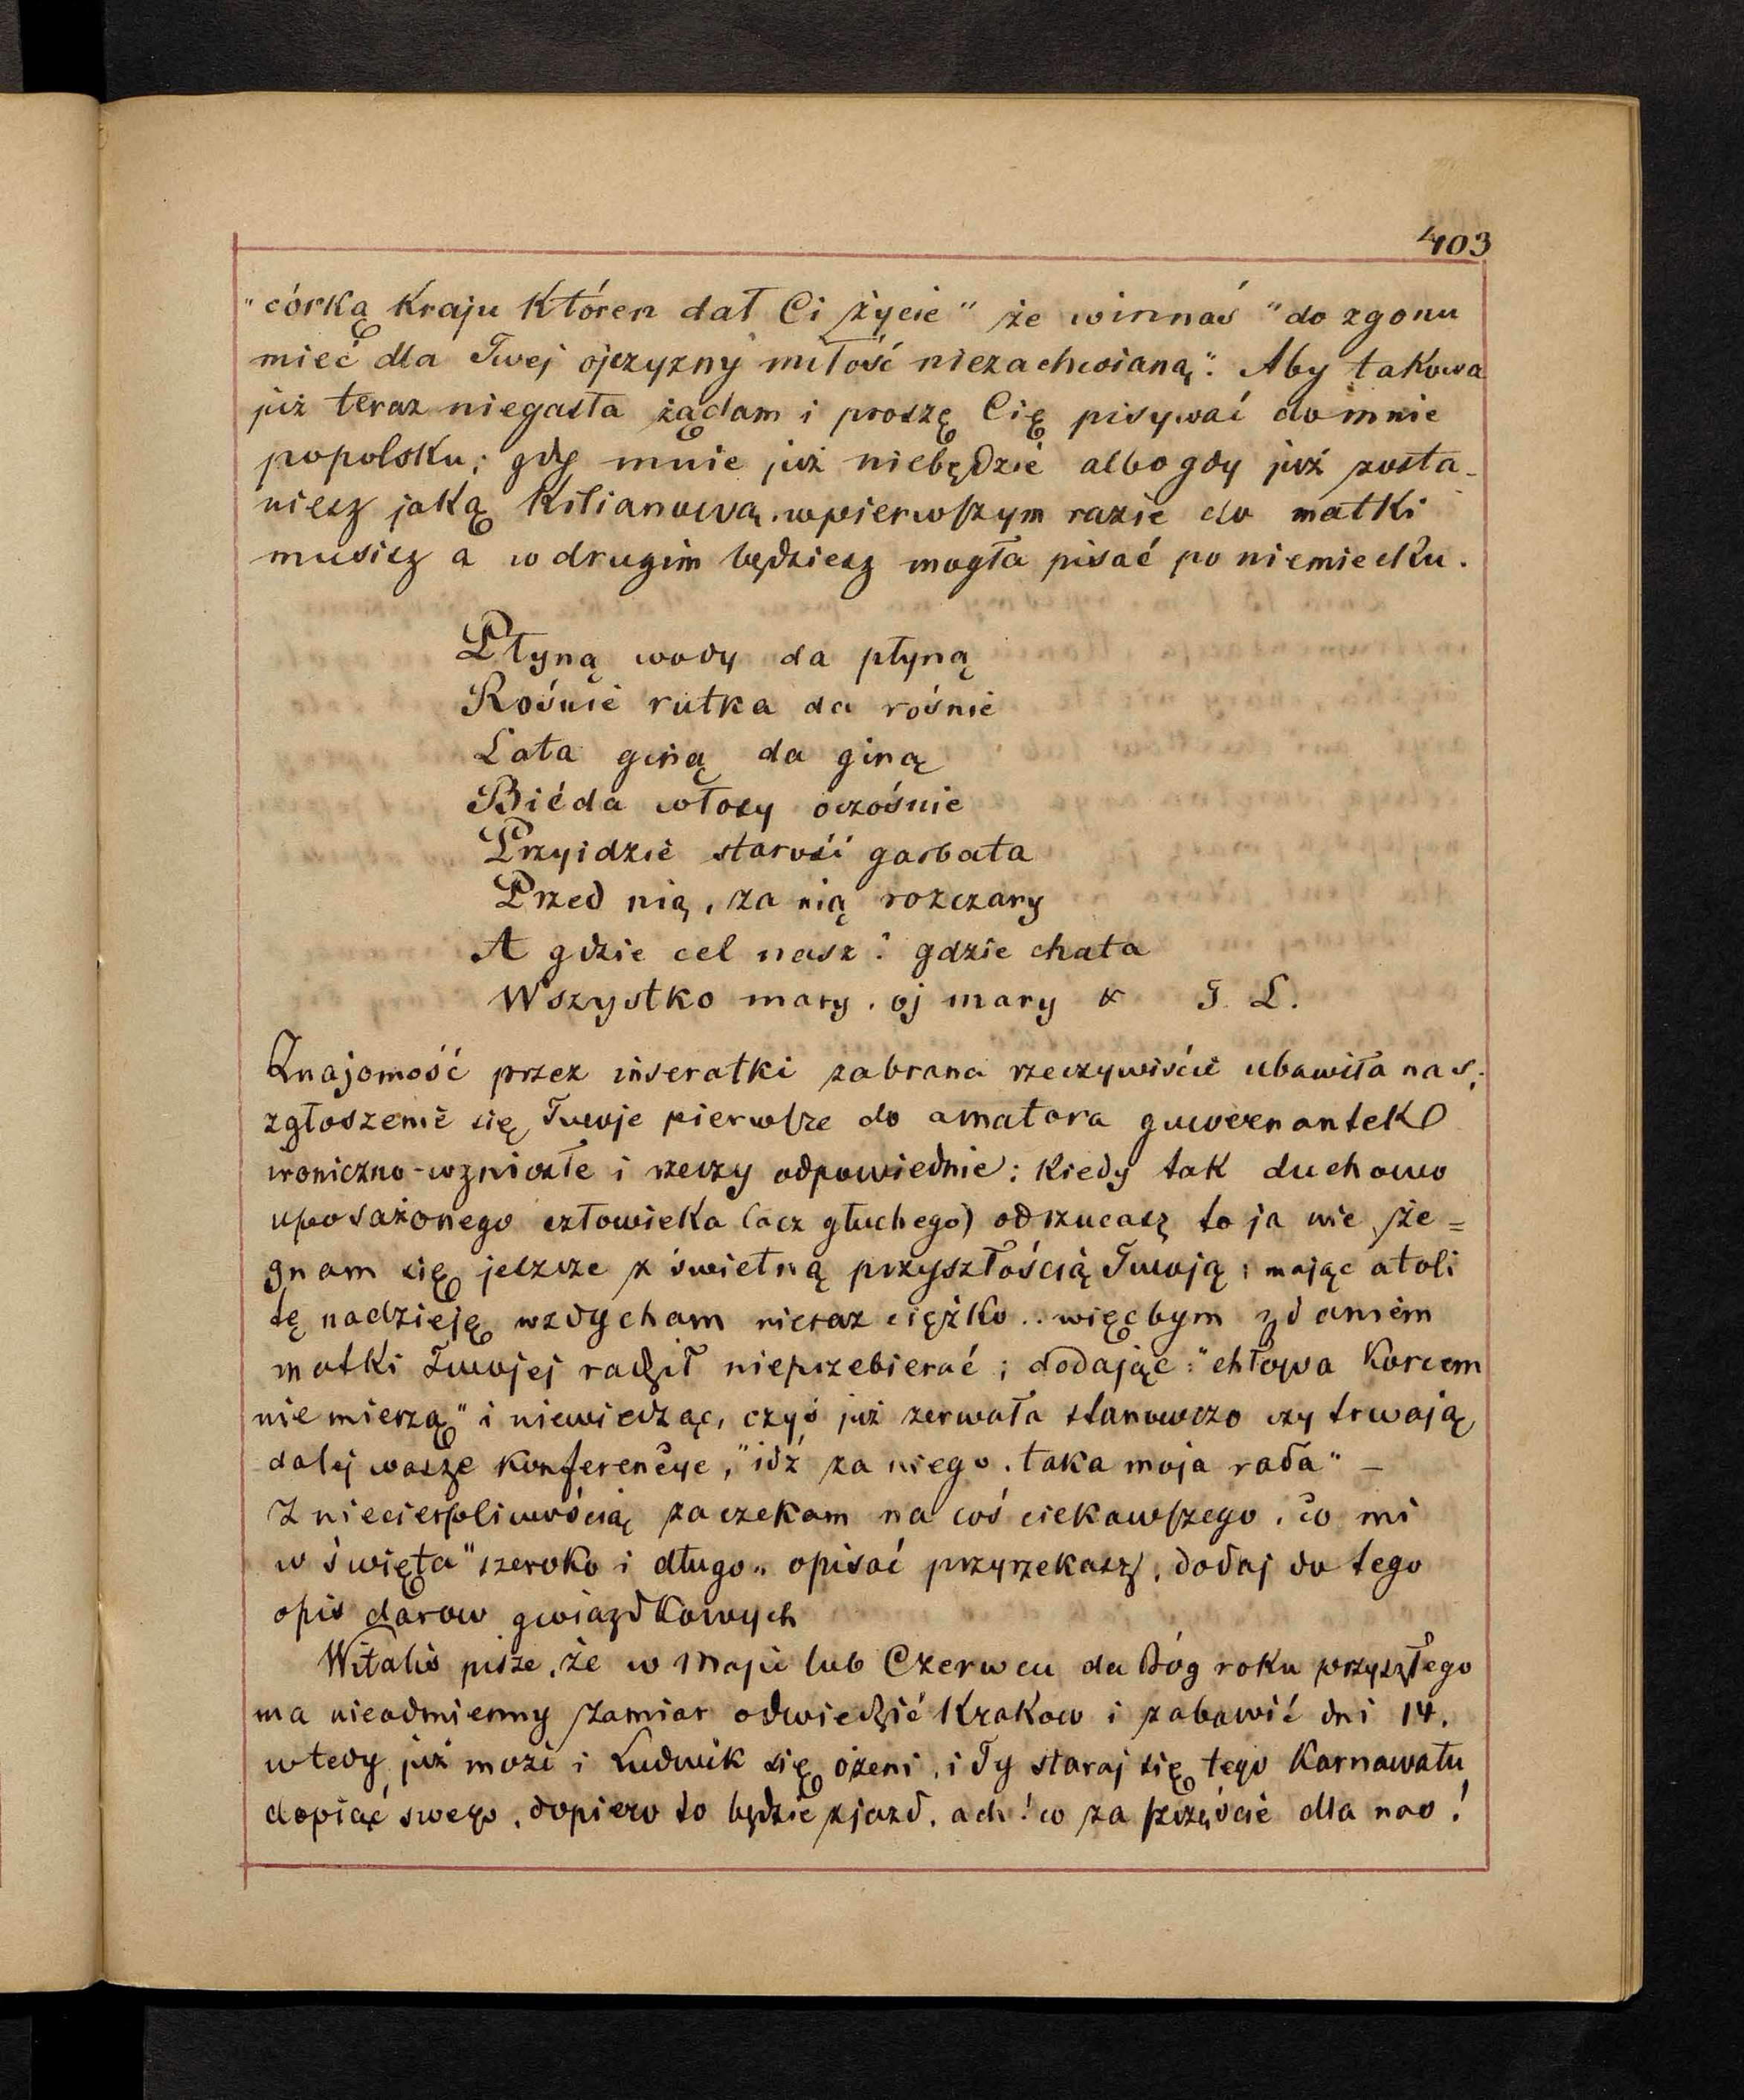 403
"córką kraju któren dał Ci życie" że winnaś "do zgonu
mieć dla Twej ojczyzny miłość niezachwianą". Aby takowa
już teraz niegasła żądam i proszę Cię pisywać do mnie
popolsku; gdy mnie już niebędzie albo gdy już zosta-
niesz jaką Kilianową. wpierwszym razie do matki
musisz a w drugim będziesz mogła pisać po niemiecku.
Płyną wody da płyną
Rośnie rutka da rośnie
Lata giną da giną
Biéda włosy oszośnie
Przyidzie starość garbata
Przed nią, za nią rozczary
A gdzie cel nasz? gdzie chata
Wszystko mary, oj mary & J. L.
Znajomość przez inseratki zabrana rzeczywiście ubawiła nas;
zgłoszenie się Twoje pierwsze do amatora guwernantek
ironiczno-wzniosłe i rzeczy odpowiednie: Kiedy tak duchowo
uposażonego człowieka (acz głuchego) odrzucasz to ja nie że=
gnam się jeszcze z świetną przyszłością Twoją; mając atoli
tę nadzieję wzdycham nieraz ciężko.. więcbym zdaniem
matki Twojej radził nieprzebierać; dodając: "chłopa korcem
nie mierzą" i niewiedząc, czyś już zerwała stanowczo czy trwają
dalej wasze konferencye, "idź za niego, taka moja rada" –
Z niecierpliwością zaczekam na coś ciekawszego, co mi
w święta "szeroko i długo" opisać przyrzekasz, dodaj do tego
opis darow gwiazdkowych
Witalis pisze, że w Maju lub Czerwcu da Bóg roku przyszłego
ma nieodmienny zamiar odwiedzić Krakow i zabawić dni 14.
wtedy już może i Ludwik się ożeni, i Ty staraj się tego Karnawału
dopiąć swego, dopiero to będzie zjazd, ach! co za szczęście dla nas!